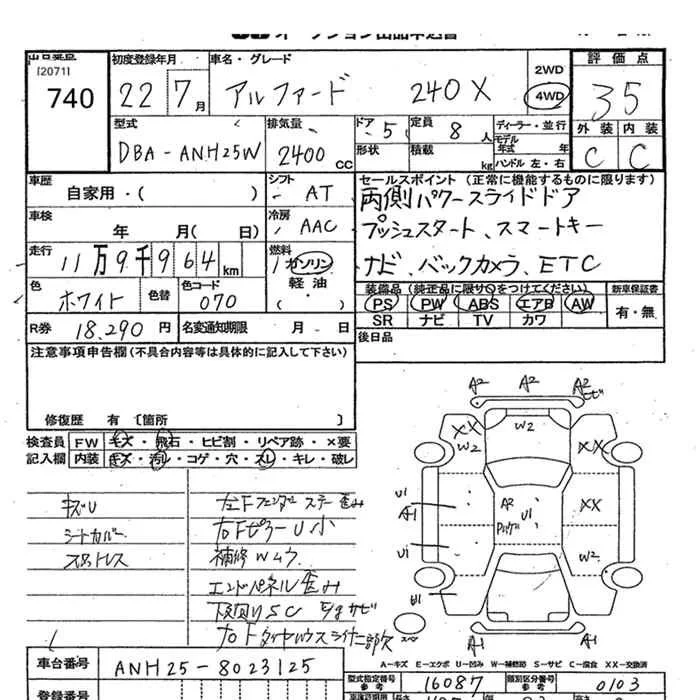 出品番号 初度登録年月 車名・グレード 評価点
(2071)
740 22 7月 アルファード 240X 2WD 4WD 35
型式 排気量 ドア 定員 ディーラー・並行 外装 内装
DBA-ANH25W 2400CC 5 8人 モデル年式 年 C C
形状 積載 kg ハンドル 左・右
車歴 シフト セールスポイント (正常に機能するものに限ります)
自家用・( ) AT 両側パワースライドドア
車検 冷房
年 月( 日) AAC プッシュスタート、スマートキー
走行 燃料
11万9千964km ガソリン ナビ、バックカメラ、ETC
色 色替 色コード 軽油
ホワイト 070 ( )
装備品 (純正品に限り○をつけてください) 新車保証書
PS PW ABS エアB AW 有・無
SR ナビ TV カワ
R券 18,290円 名変通知期限 月 日
後日品
注意事項申告欄(不具合内容等は具体的に記入して下さい)
修復歴 有 〔箇所 〕
検査員 FW キズ・飛石・ヒビ割・リペア跡・×要
記入欄 内装 キズ・汚レ・コゲ・穴・スレ・キレ・破レ
キズU
シートカバー
左Fフェンダーステー歪み
右FピラーU小
補修Wムラ
エンドパネル歪み
下廻りSC
右Fタイヤハウスライナー部欠
A2 A2 A2
XX W2 W2 XX
U1 A1 A2 U1 XX
U1 W2
A1 A1
A-キズ E-エクボ U-凹み W-補修跡 S-サビ C-腐食 XX-交換済
車台番号 ANH25-8023125
型式指定番号 参考 16087 類別区分番号 参考 0103
登録番号